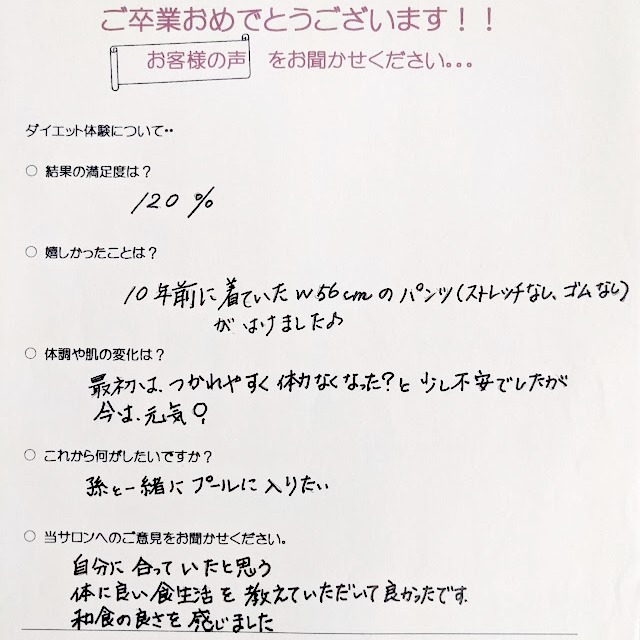 ご卒業おめでとうございます！！
お客様の声 をお聞かせください。。。
ダイエット体験について‥
○ 結果の満足度は？
120 %
○ 嬉しかったことは？
10年前に着ていたW56cmのパンツ(ストレッチなし、ゴムなし)
がはけました♪
○ 体調や肌の変化は？
最初は、つかれやすく体力なくなった？と少し不安でしたが
今は、元気！
○ これから何がしたいですか？
孫と一緒にプールに入りたい
○ 当サロンへのご意見をお聞かせください。
自分に合っていたと思う
体に良い食生活を教えていただいて良かったです。
和食の良さを感じました